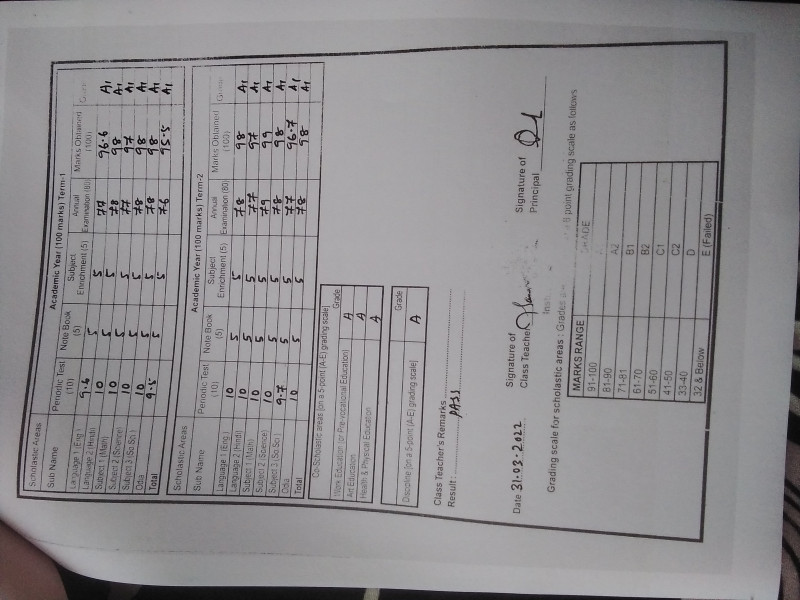 Scholastic Areas Academic Year (100 marks) Term-1
Sub Name Periodic Test (10) Note Book (5) Subject Enrichment (5) Annual Examination (80) Marks Obtained (100) Grade
Language 1 (Eng) 9.6 5 5 77 96.6 A1
Language 2 (Hindi) 10 5 5 78 98 A1
Subject 1 (Math) 10 5 5 77 97 A1
Subject 2 (Science) 10 5 5 78 98 A1
Subject 3 (So.Sci) 10 5 5 78 98 A1
Odia 9.5 5 5 76 95.5 A1
Total
Scholastic Areas Academic Year (100 marks) Term-2
Sub Name Periodic Test (10) Note Book (5) Subject Enrichment (5) Annual Examination (80) Marks Obtained (100) Grade
Language 1 (Eng) 10 5 5 78 98 A1
Language 2 (Hindi) 10 5 5 77 97 A1
Subject 1 (Math) 10 5 5 79 99 A1
Subject 2 (Science) 10 5 5 78 98 A1
Subject 3 (So.Sci) 9.7 5 5 77 96.7 A1
Odia 10 5 5 78 98 A1
Total
Co-Scholastic areas [on a 5-point (A-E) grading scale] Grade
Work Education (or Pre-vocational Education) A
Art Education A
Health & Physical Education A
Grade
Discipline [on a 5-point (A-E) grading scale] A
Class Teacher's Remarks
Result : PASS
Date 31.03.2022 Signature of Class Teacher Signature of Principal
Grading scale for scholastic areas : Grades are 8 point grading scale as follows
MARKS RANGE GRADE
91-100
81-90 A2
71-81 B1
61-70 B2
51-60 C1
41-50 C2
33-40 D
32 & Below E (Failed)